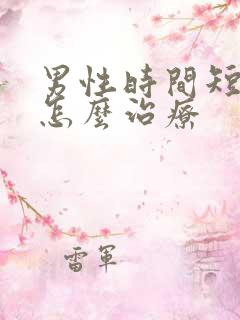 男性時間短
怎麼治療
雷軍